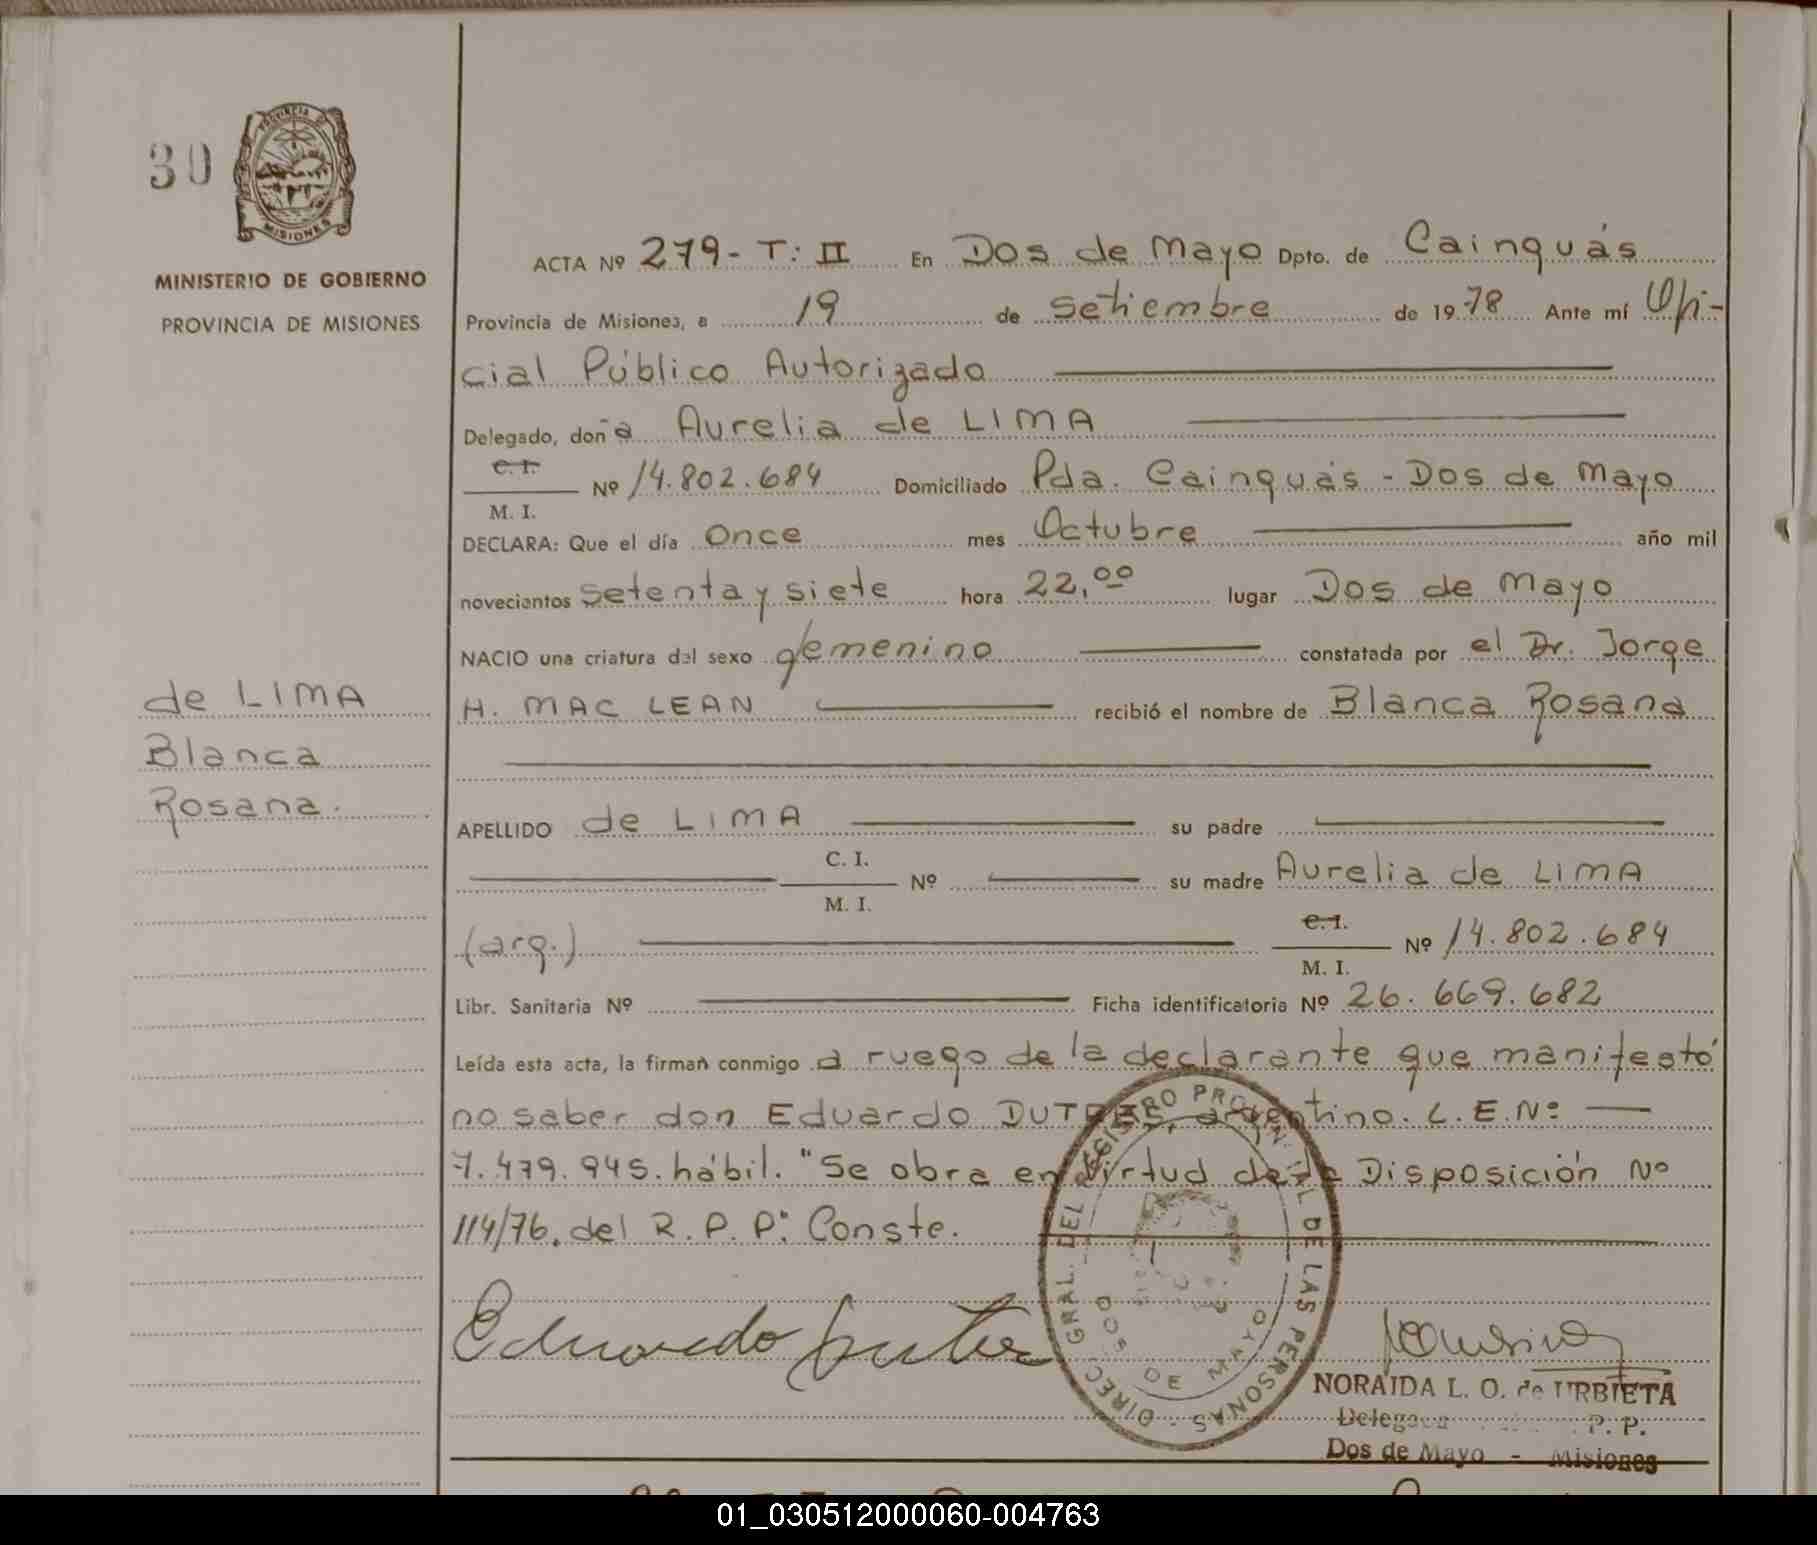 30
PROVINCIA DE
MISIONES
MINISTERIO DE GOBIERNO
PROVINCIA DE MISIONES
de LIMA
Blanca
Rosana.
ACTA Nº 279- T: II En Dos de Mayo Dpto. de Cainguás
Provincia de Misiones, a 19 de setiembre de 19 78 Ante mí Ofi-
cial Público Autorizado
Delegado, doña Aurelia de LIMA
C. I.
Nº 14.802.684 Domiciliado Pda. Cainguás - Dos de Mayo
M. I.
DECLARA: Que el día Once mes Octubre año mil
novecientos setenta y siete hora 22,00 lugar Dos de Mayo
NACIO una criatura del sexo femenino constatada por el Dr. Jorge
H. MAC LEAN recibió el nombre de Blanca Rosana
APELLIDO de LIMA su padre
C. I.
Nº su madre Aurelia de LIMA
M. I.
(arg.) C. I. Nº 14.802.684
M. I.
Libr. Sanitaria Nº Ficha identificatoria Nº 26.669.682
Leída esta acta, la firman conmigo a ruego de la declarante que manifestó
no saber don Eduardo DUTRE, argentino. L.E.Nº
7.479.945. hábil. "Se obra en virtud de la Disposición Nº
114/76. del R.P.P." Conste.
Eduardo
DIREC. GRAL. DEL REGISTRO PROVINCIAL DE LAS PERSONAS
DOS DE MAYO
NORAIDA L. O. de URBIETA
P. P.
Dos de Mayo - Misiones
01_030512000060-004763